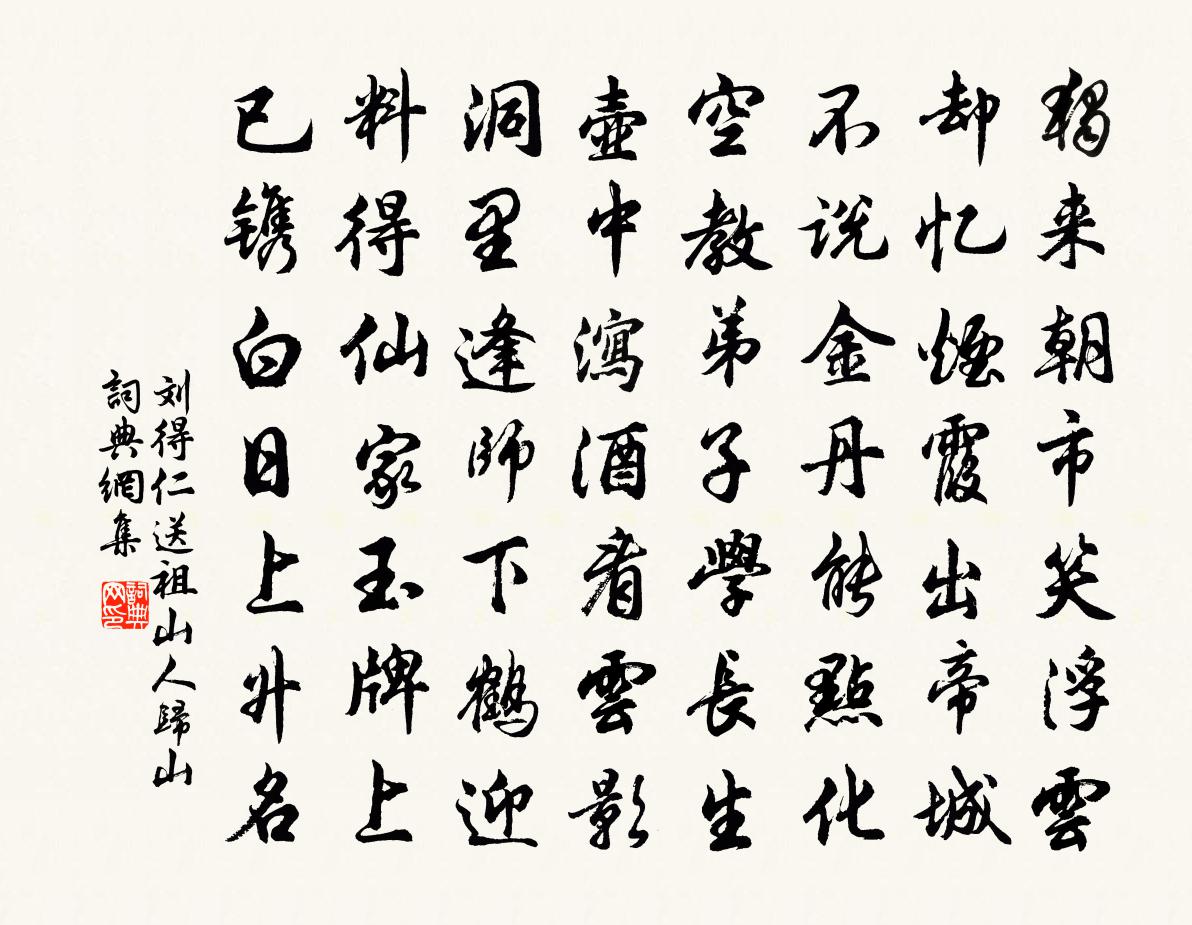 獨来朝市笑浮雲
却忆煙霞出帝城
不说金丹能點化
空教弟子學長生
壺中瀉酒看雲影
洞里逢師下鶴迎
料得仙家玉牌上
已镌白日上升名
刘得仁送祖山人歸山
詞典網集
詞典网印